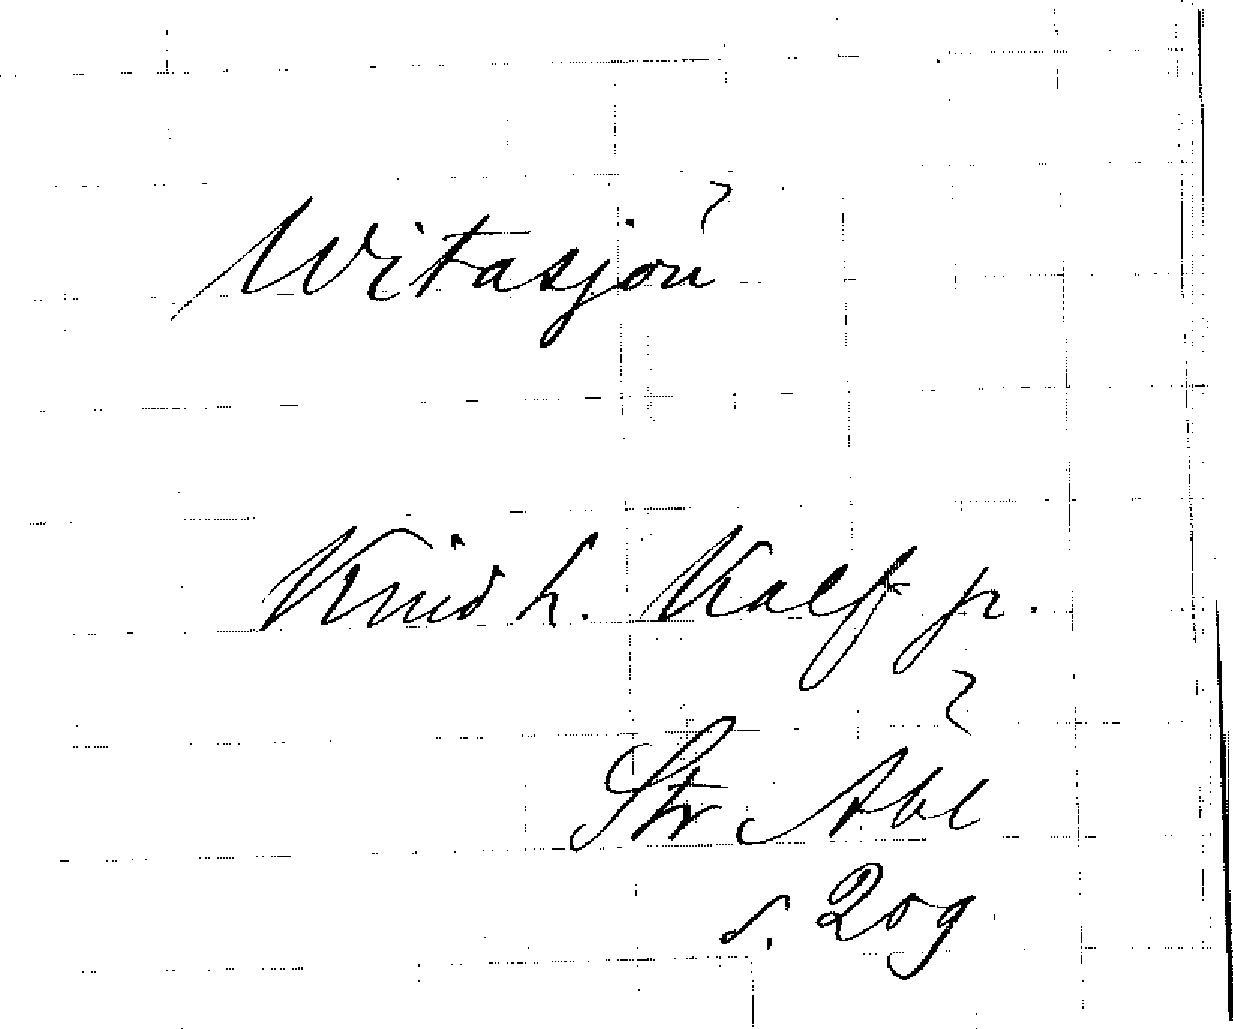 Witasjön ?
Knid h. Kalf jr.
?
Str Abl
s. 209